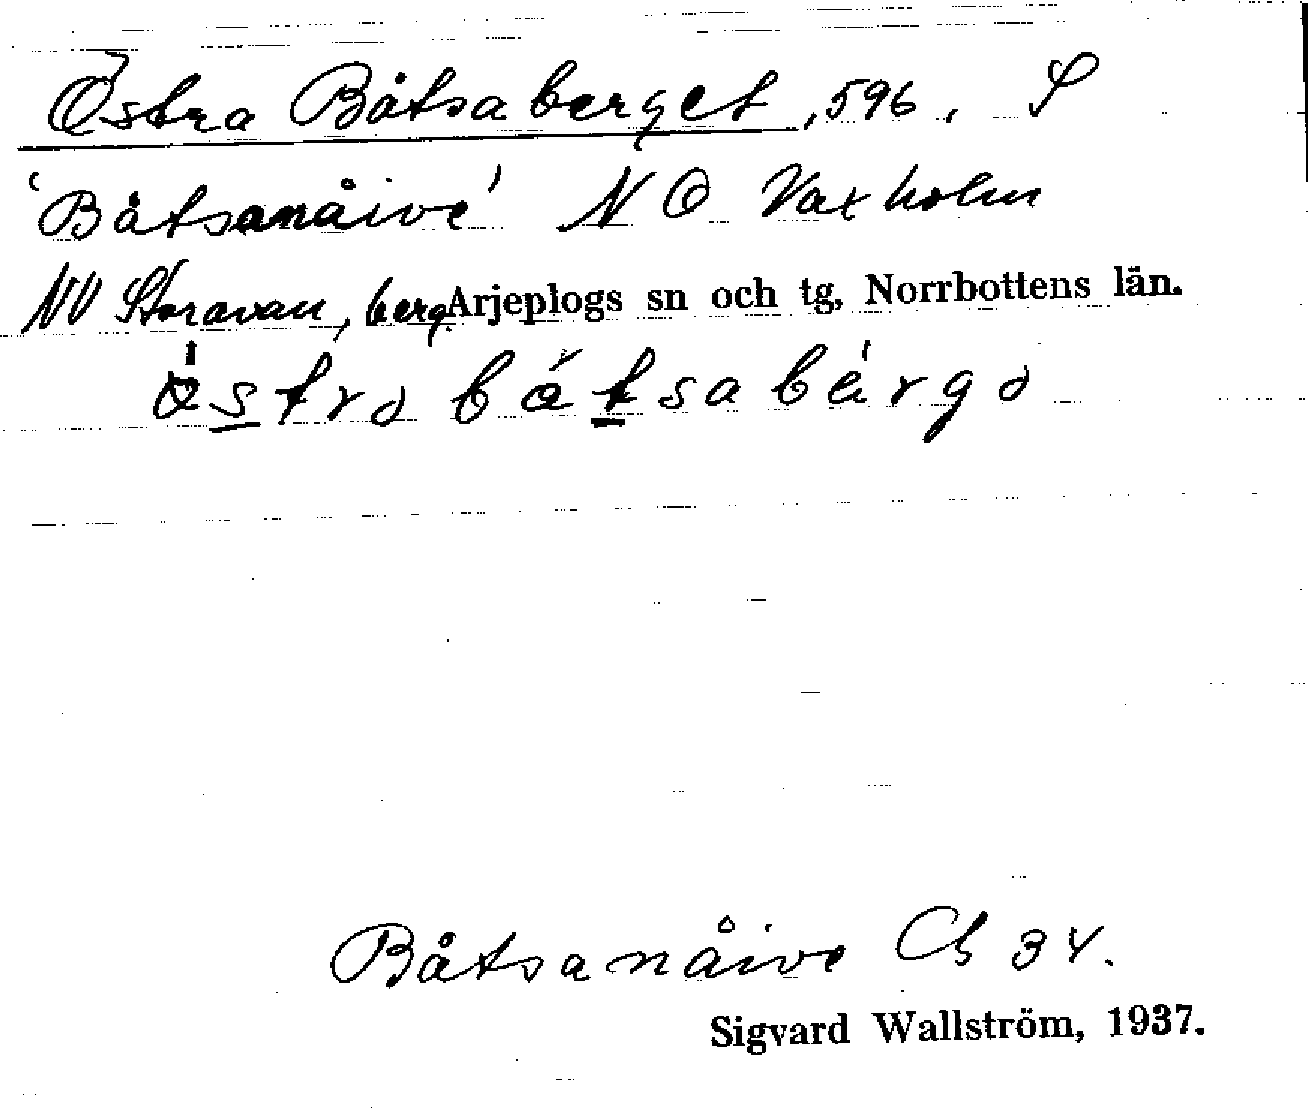 Östra Båtsaberget, 596. S
'Båtsanåive' NO Vaxholm
NV Storavan, berg. Arjeplogs sn och tg, Norrbottens län.
östra båtsabärga
Båtsanåive Ch 34.
Sigvard Wallström, 1937.